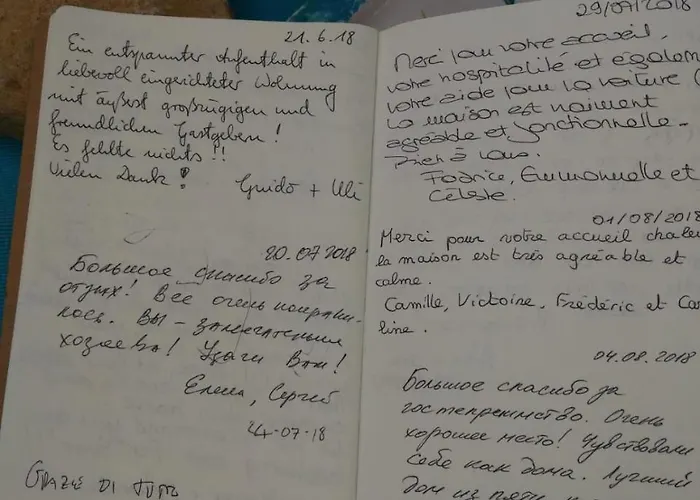 21.6.18
Ein entspannter Aufenthalt in
liebevoll eingerichteter Wohnung
mit äußerst großzügigen und
freundlichen Gastgebern!
Es fehlte nichts!!
Vielen Dank! Guido + Uli
20.07 2018
Большое спасибо за
отдых! Все очень понрави-
лось. Вы - замечательные
хозяева! Удачи Вам!
Елена, Сергей
24-07-18
GRAZIE DI TUTTO
29/07/2018
Merci pour votre accueil,
votre hospitalité et égalem
votre aide pour la voiture (
La maison est vraiment
agréable et fonctionnelle -
Bien à vous.
Fabrice, Emmanuelle et
Céleste.
01/08/2018
Merci pour votre accueil chaleu
la maison est très agréable et
calme.
Camille, Victoire, Frédéric et Ca
line.
04.08.2018
Большое спасибо за
гостеприимство. Очень
хорошее место! Чувствовали
себя как дома. Лучший
дом из пяти